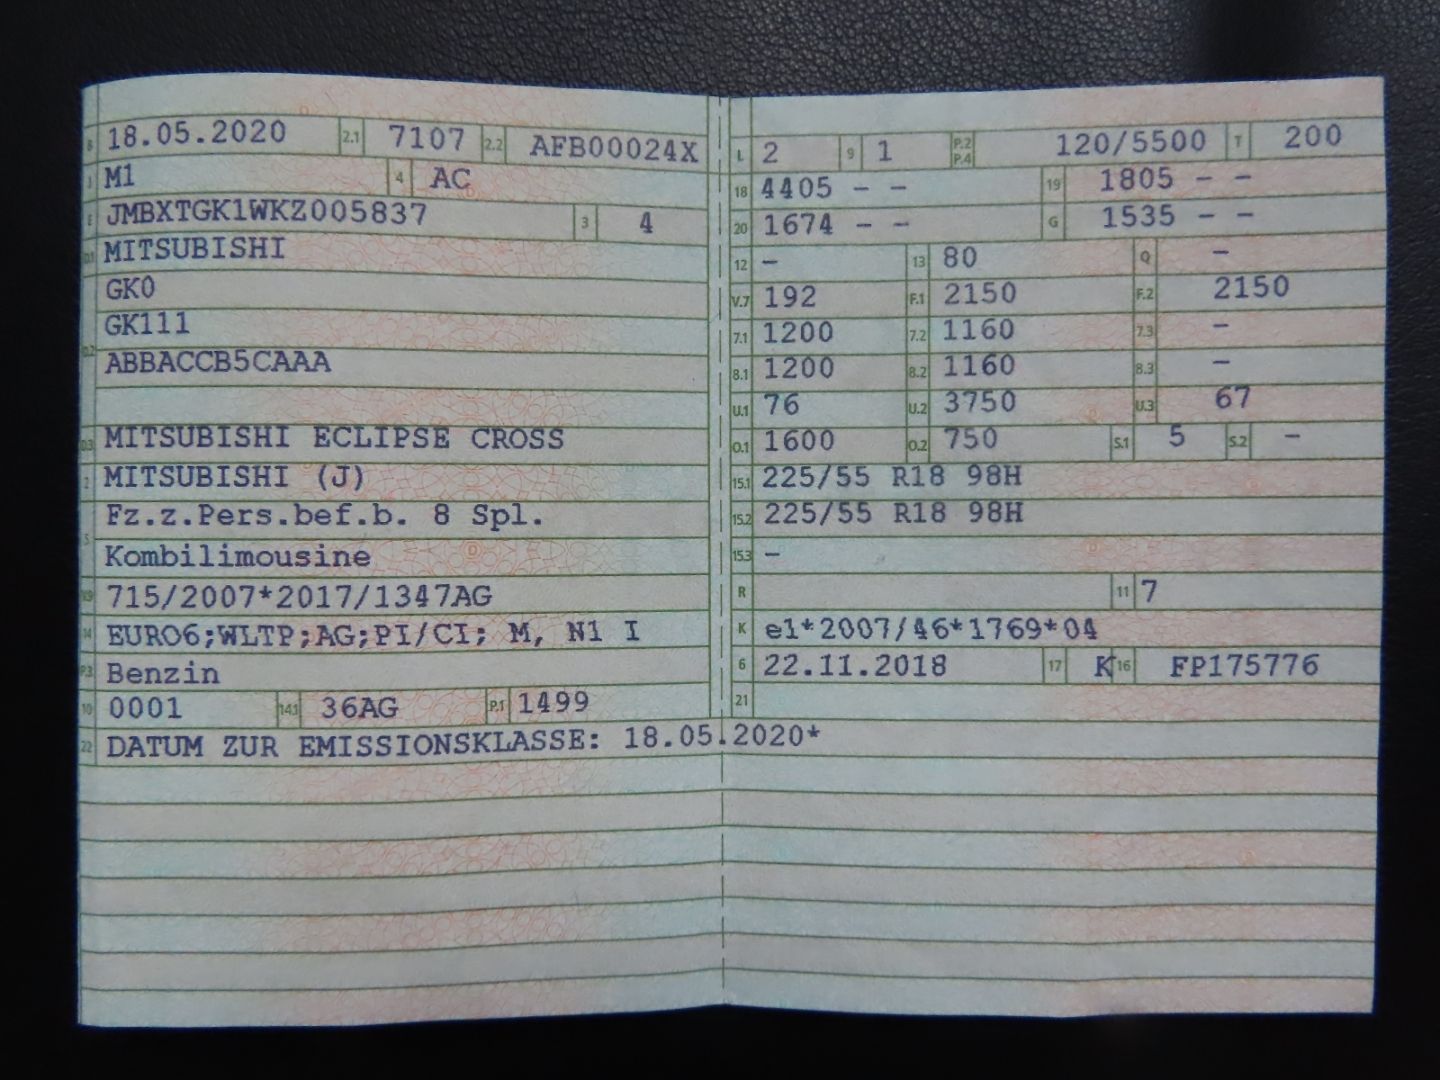 B 18.05.2020 2.1 7107 2.2 AFB00024X
J M1 4 AC
E JMBXTGK1WKZ005837 3 4
D.1 MITSUBISHI
GK0
GK111
D.2 ABBACCB5CAAA
D.3 MITSUBISHI ECLIPSE CROSS
2 MITSUBISHI (J)
Fz.z.Pers.bef.b. 8 Spl.
5 Kombilimousine
V.9 715/2007*2017/1347AG
14 EURO6;WLTP;AG;PI/CI; M, N1 I
P.3 Benzin
10 0001 14.1 36AG P.1 1499
22 DATUM ZUR EMISSIONSKLASSE: 18.05.2020*
L 2 9 1 P.2 P.4 120/5500 T 200
18 4405 - - 19 1805 - -
20 1674 - - G 1535 - -
12 - 13 80 Q -
V.7 192 F.1 2150 F.2 2150
7.1 1200 7.2 1160 7.3 -
8.1 1200 8.2 1160 8.3 -
U.1 76 U.2 3750 U.3 67
O.1 1600 O.2 750 S.1 5 S.2 -
15.1 225/55 R18 98H
15.2 225/55 R18 98H
15.3 -
R 11 7
K e1*2007/46*1769*04
6 22.11.2018 17 K 16 FP175776
21